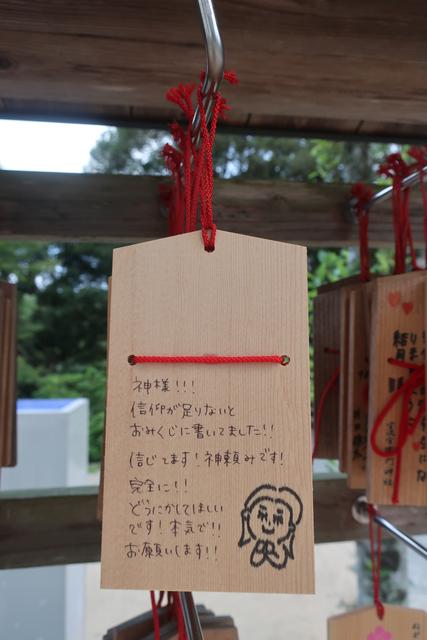 神様!!!
信仰が足りないと
おみくじに書いてました!!
信じてます!神頼みです!
完全に!!
どうにかしてほしい
です!本気で!!
お願いします!!